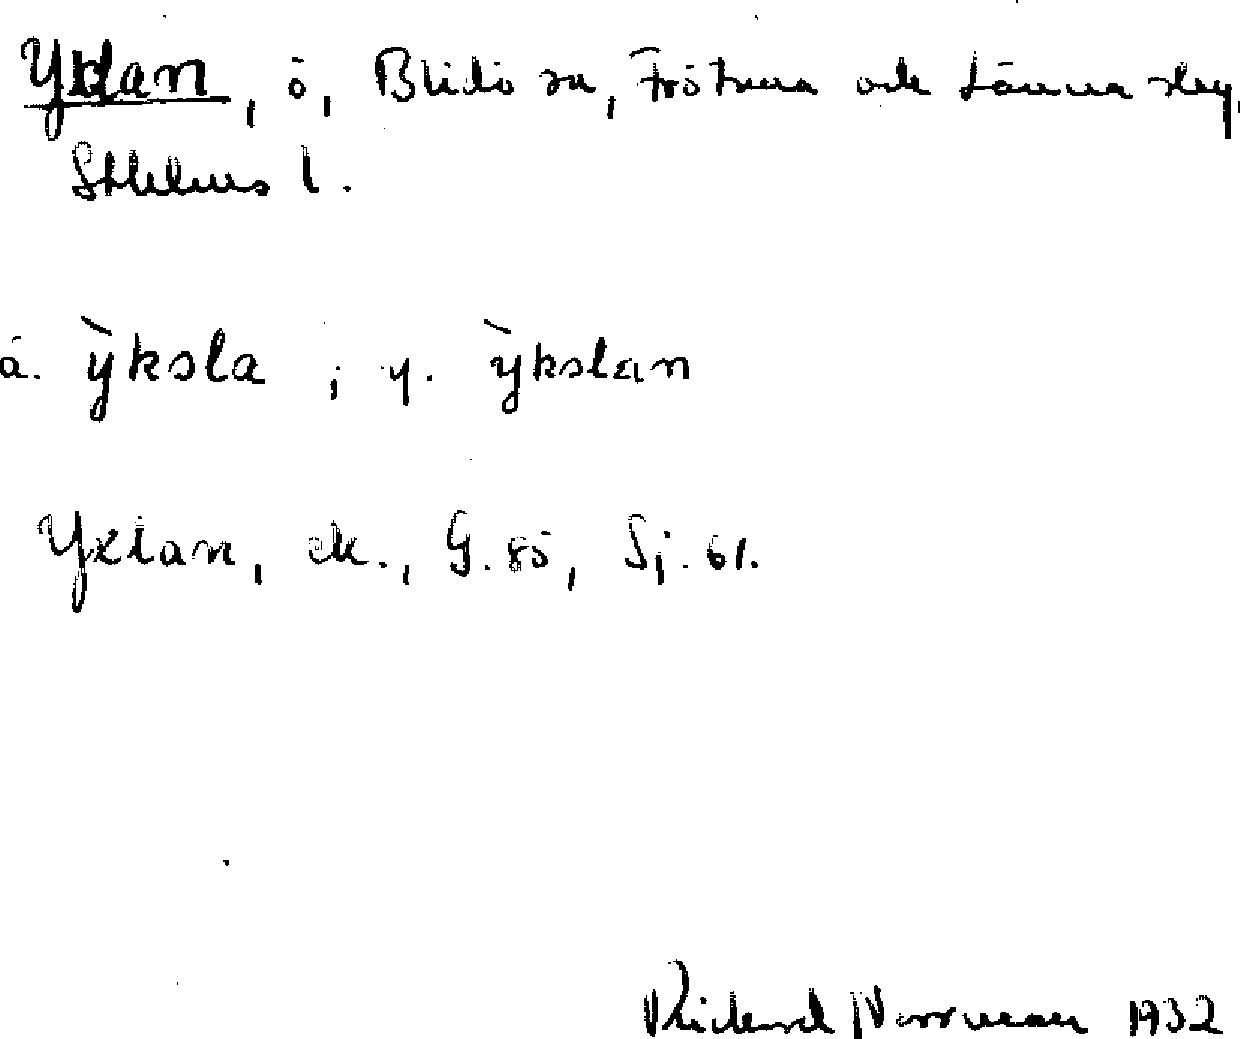 Yxlan, ö, Blidö sn, Frötuna och Länna skg,
Sthlms l.
ä. ỳksla ; y. ỳkslan
Yxlan, ek., G. 85, Sj. 61.
Rickard Norrman 1932